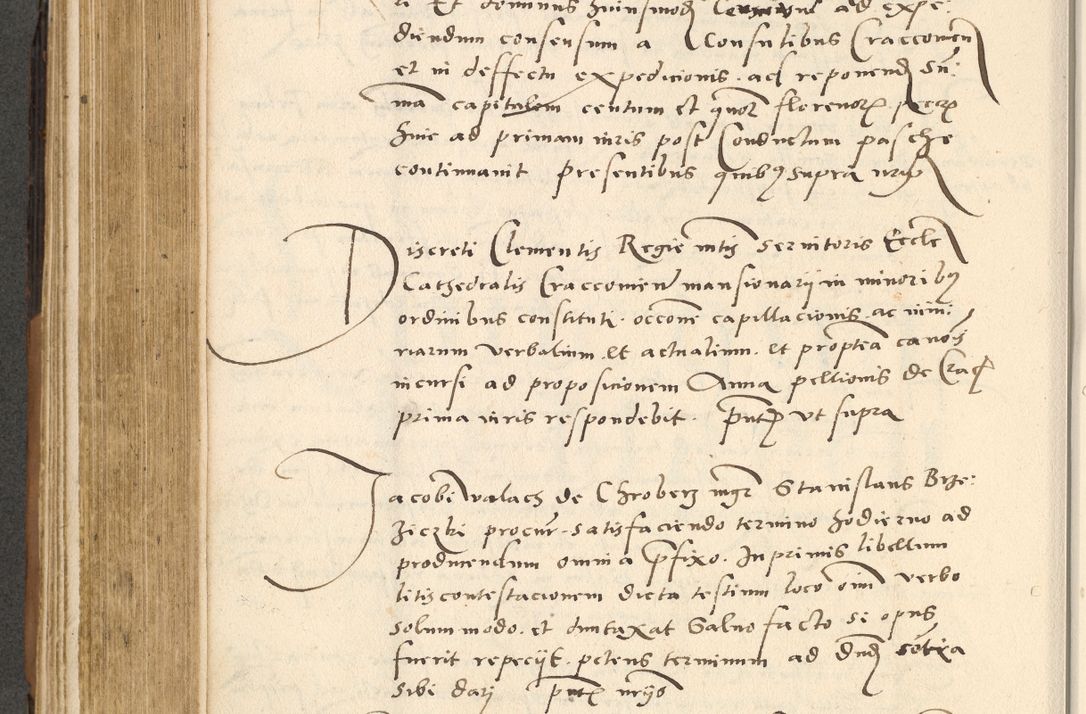 Et dominus huiusmodi ad expe:
diendum consensum a Consulibus Craccovien
et in deffectu expedicionis ac reponend Su:
ma capitalem centum et florenor
huic ad primam iuris post Conductum pasche
continuavit presentibus quibus supra
Discreti Clementis Regie mtis servitoris Eccle
Cathedralis Craccovien mansionarij in minoribus
ordinibus constituti occone capillacionis ac iniu:
riarum verbalium et actualium et proptea canois
incursi ad proposicionem Anna pellionis de Crac
prima iuris respondebit pntp ut supra
Jacobi Walach de Chroberz mgr Stanislaus Brze:
ziczki procur satisfaciendo termino hodierno ad
producendum omnia pfixo In primis libellum
litis contestacionem dicta testium loco oim verbo
solummodo et duntaxat Salvo facto si opus
fuerit repecijt petens terminum ad dnd
sibi dari pntp